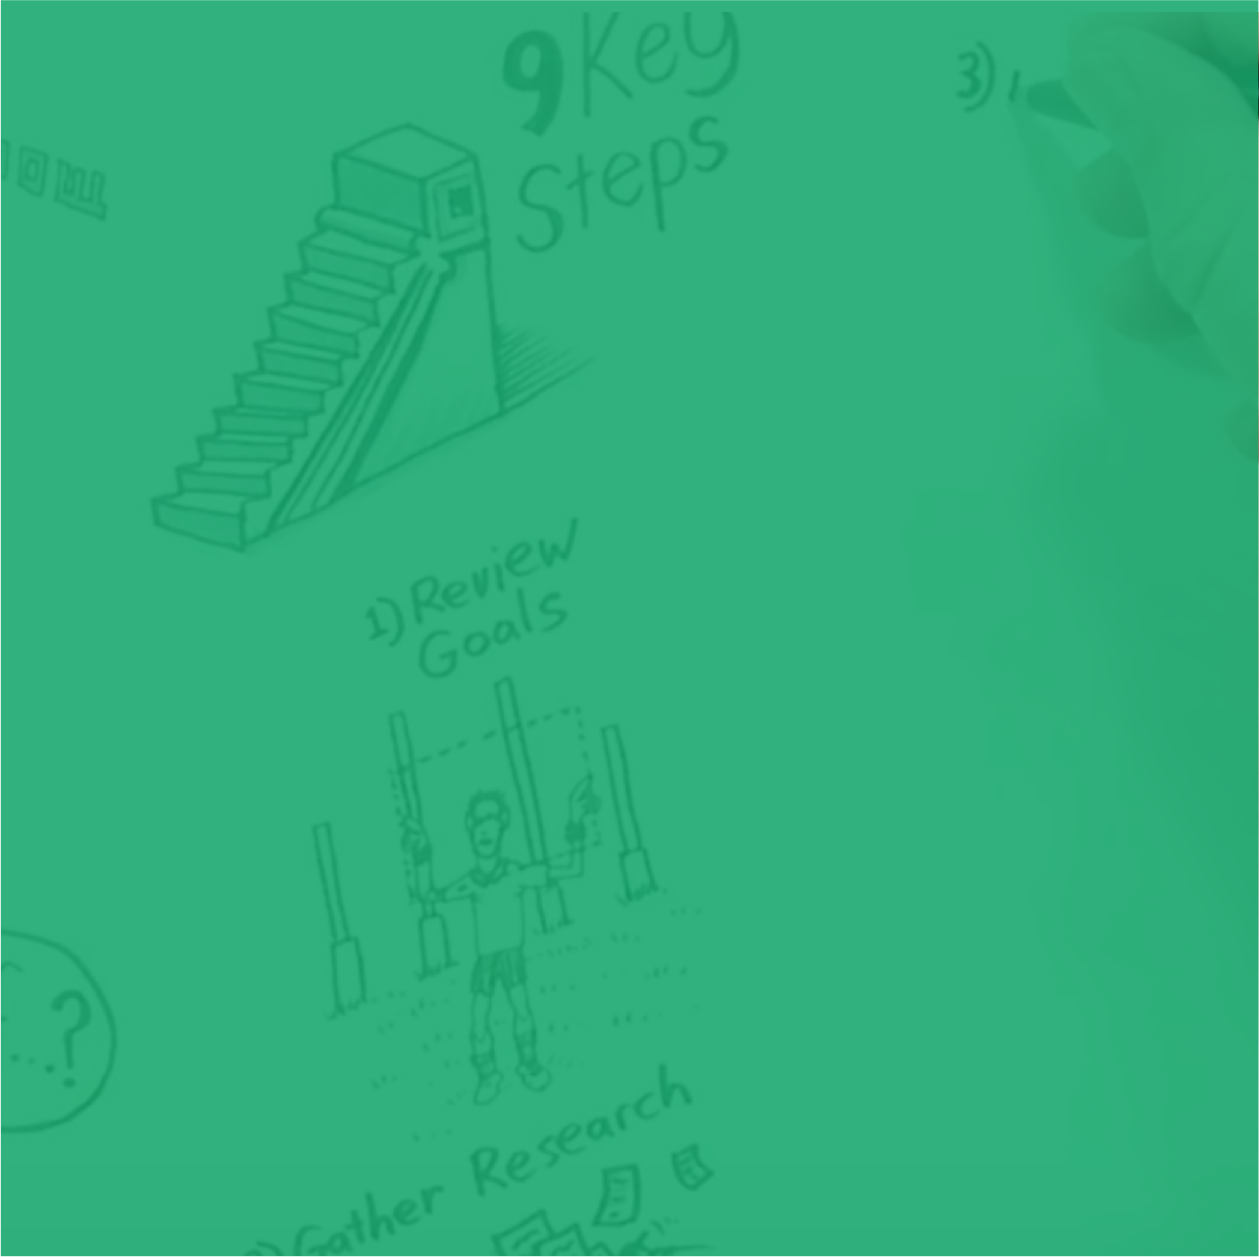 9 Key
Steps
3)
1) Review
Goals
?
2) Gather Research